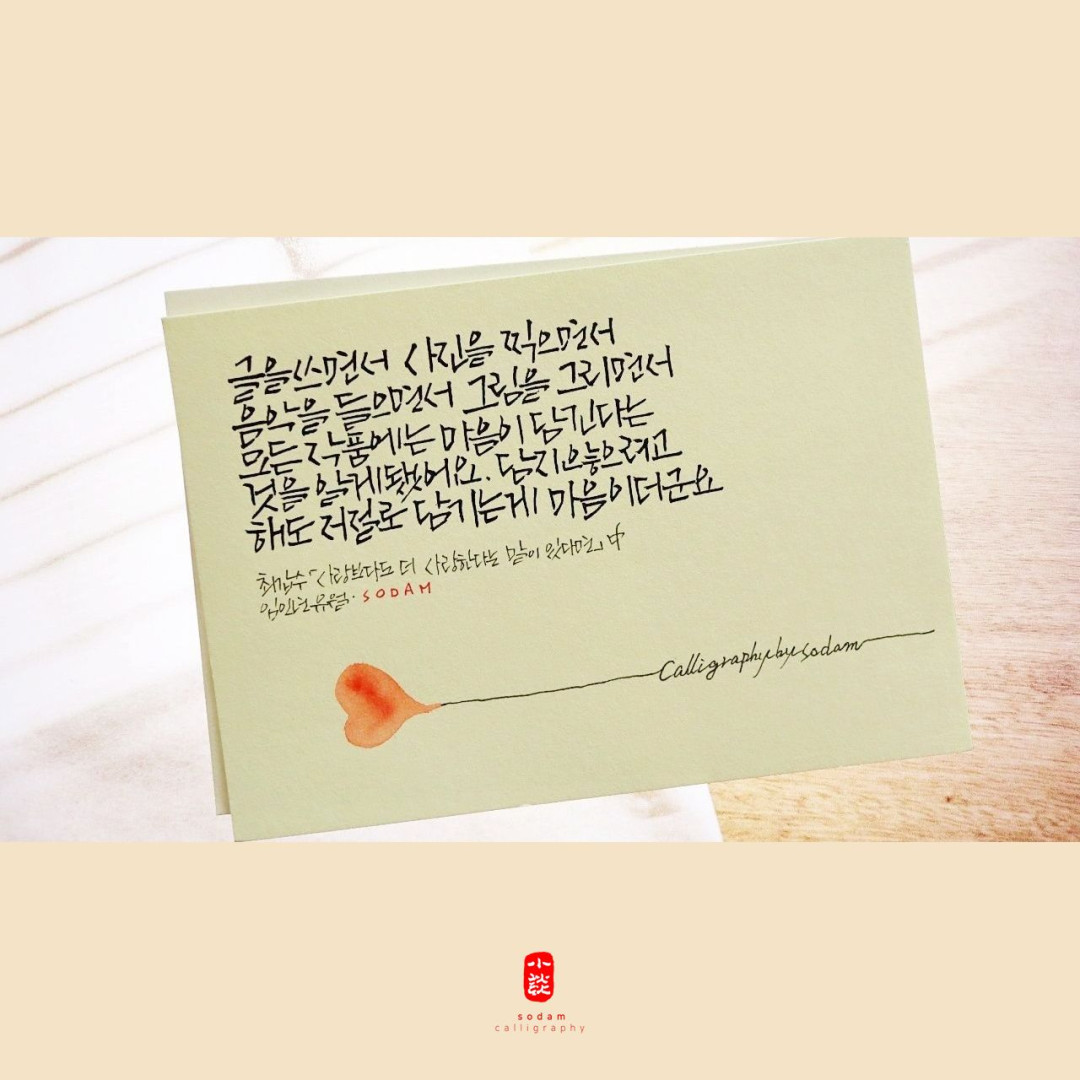 글을 쓰면서 사진을 찍으면서
음악을 들으면서 그림을 그리면서
모든 작품에는 마음이 담긴다는
것을 알게됐어요. 담지않으려고
해도 저절로 담기는게 마음이더군요
최갑수 「사랑보다도 더 사랑한다는 말이 있다면」中
임인년 유월. SODAM
Calligraphy by sodam
小談
sodam
calligraphy